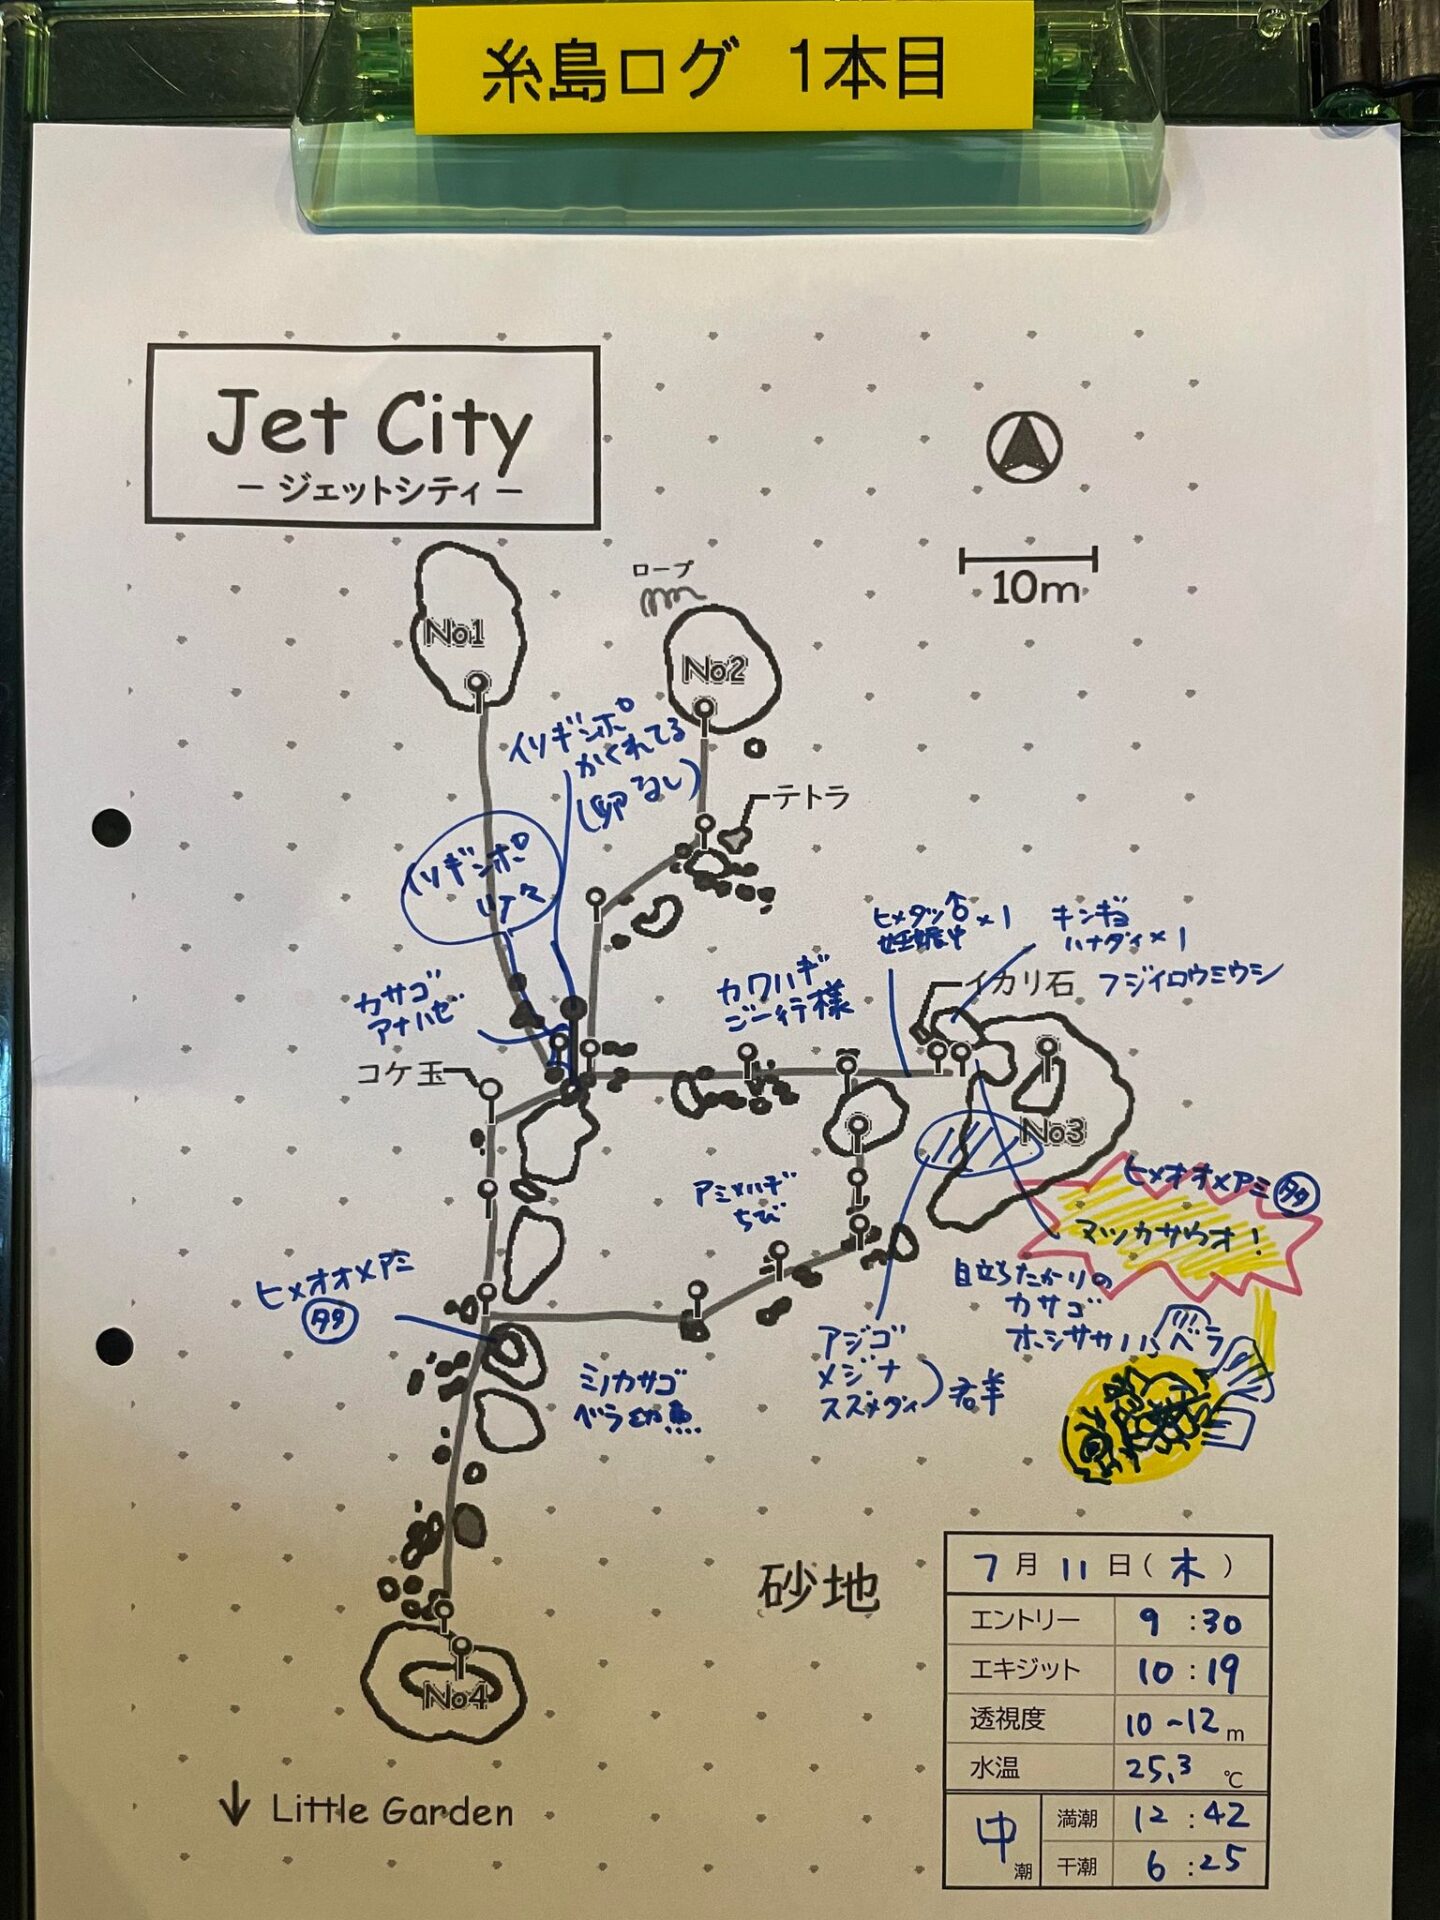 糸島ログ 1本目
Jet City
－ジェットシティ－
10m
ロープ
No1
No2
イソギンポ
かくれてる
(卵なし)
テトラ
イソギンポ
ヒメダツ♂×1
妊娠中
キンギョ
ハナダイ×1
カサゴ
アナハゼ
カワハギ
ご一行様
イカリ石
フジイロウミウシ
コケ玉
No3
アミメハギ
ちび
ヒメオオメアミ
多
マツカサウオ!
ヒメオオメアミ
多
目立ちたがりの
カサゴ
ホシササノハベラ
アジゴ
メジナ
スズメダイ
群
ミノカサゴ
ベラ幼魚
砂地
No4
↓ Little Garden
7月11日(木)
エントリー 9:30
エキジット 10:19
透視度 10~12m
水温 25.3℃
中潮
満潮 12:42
干潮 6:25